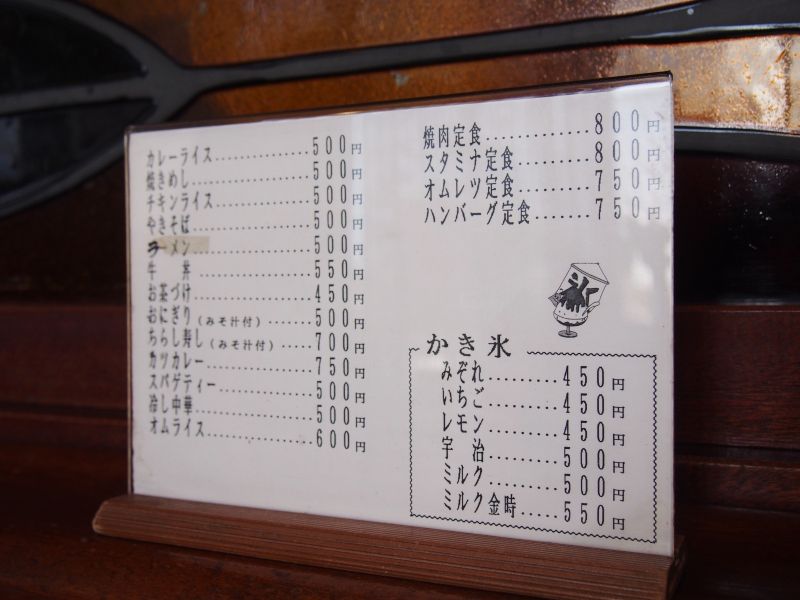 カレーライス..............500円
焼きめし..................500円
チキンライス..............500円
やきそば..................500円
ラーメン..................500円
牛　丼....................550円
お茶づけ..................450円
おにぎり(みそ汁付).......500円
ちらし寿し(みそ汁付).....700円
カツカレー................750円
スパゲティー..............500円
冷し中華..................500円
オムライス................600円
焼肉定食............800円
スタミナ定食........800円
オムレツ定食........750円
ハンバーグ定食.......750円
氷
かき氷
みぞれ..........450円
いちご..........450円
レモン..........450円
宇　治..........500円
ミルク..........500円
ミルク金時......550円